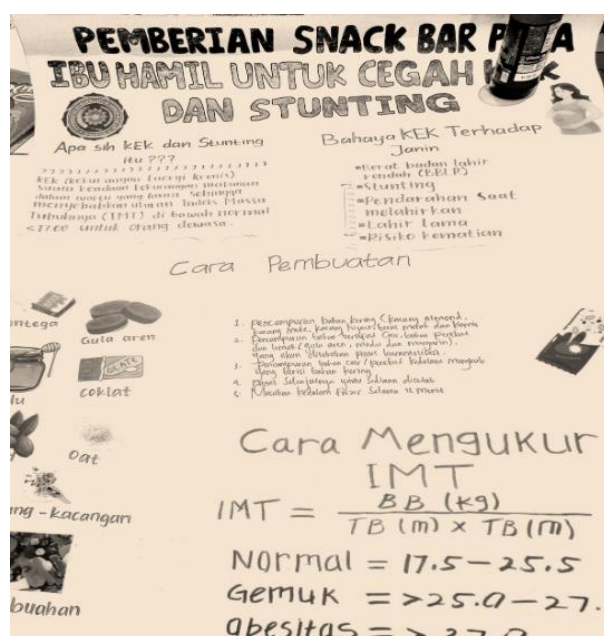 PEMBERIAN SNACK BAR P A
IBU HAMIL UNTUK CEGAH K K
DAN STUNTING
Apa sih KEK dan Stunting
itu ???
KEK (kekurangan Energi Kronis)
Suatu keadaan kekurangan makanan
dalam waktu yang lama Sehingga
menyebabkan ukuran Indeks Massa
Tubuhnya (IMT) di bawah normal
<17.00 untuk orang dewasa.
Bahaya KEK Terhadap
Janin
Berat badan lahir
rendah (BBLR)
Stunting
Pendarahan Saat
melahirkan
Lahir lama
Risiko kematian
Cara Pembuatan
ntega
Gula aren
lu
coklat
Oat
ng-kacangan
buahan
1. Pencampuran bahan kering (kacang almond,
kacang mete, kacang hijau,
2. Pencampuran bahan
dan lemak (gula aren, madu dan margarin),
yang akan proses karamelisasi).
3. Pencampuran bahan cair / kedalam mangkuk
yang berisi bahan kering
4. Proses Selanjutnya yaitu adonan dicetak
5. Masukan kedalam Selama 12 menit
Cara Mengukur
IMT
IMT = BB (kg)
TB (m) x TB (m)
Normal = 17.5-25.5
Gemuk = >25.0-27.
Obesitas = >27.0